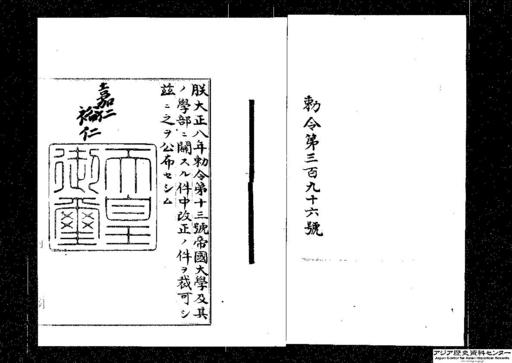 勅令第三百九十六號
朕大正八年勅令第十三號帝國大學及其
ノ學部ニ關スル件中改正ノ件ヲ裁可シ
茲ニ之ヲ公布セシム
嘉仁
裕仁
天皇
御璽
アジア歴史資料センター
Japan Center for Asian Historical Records